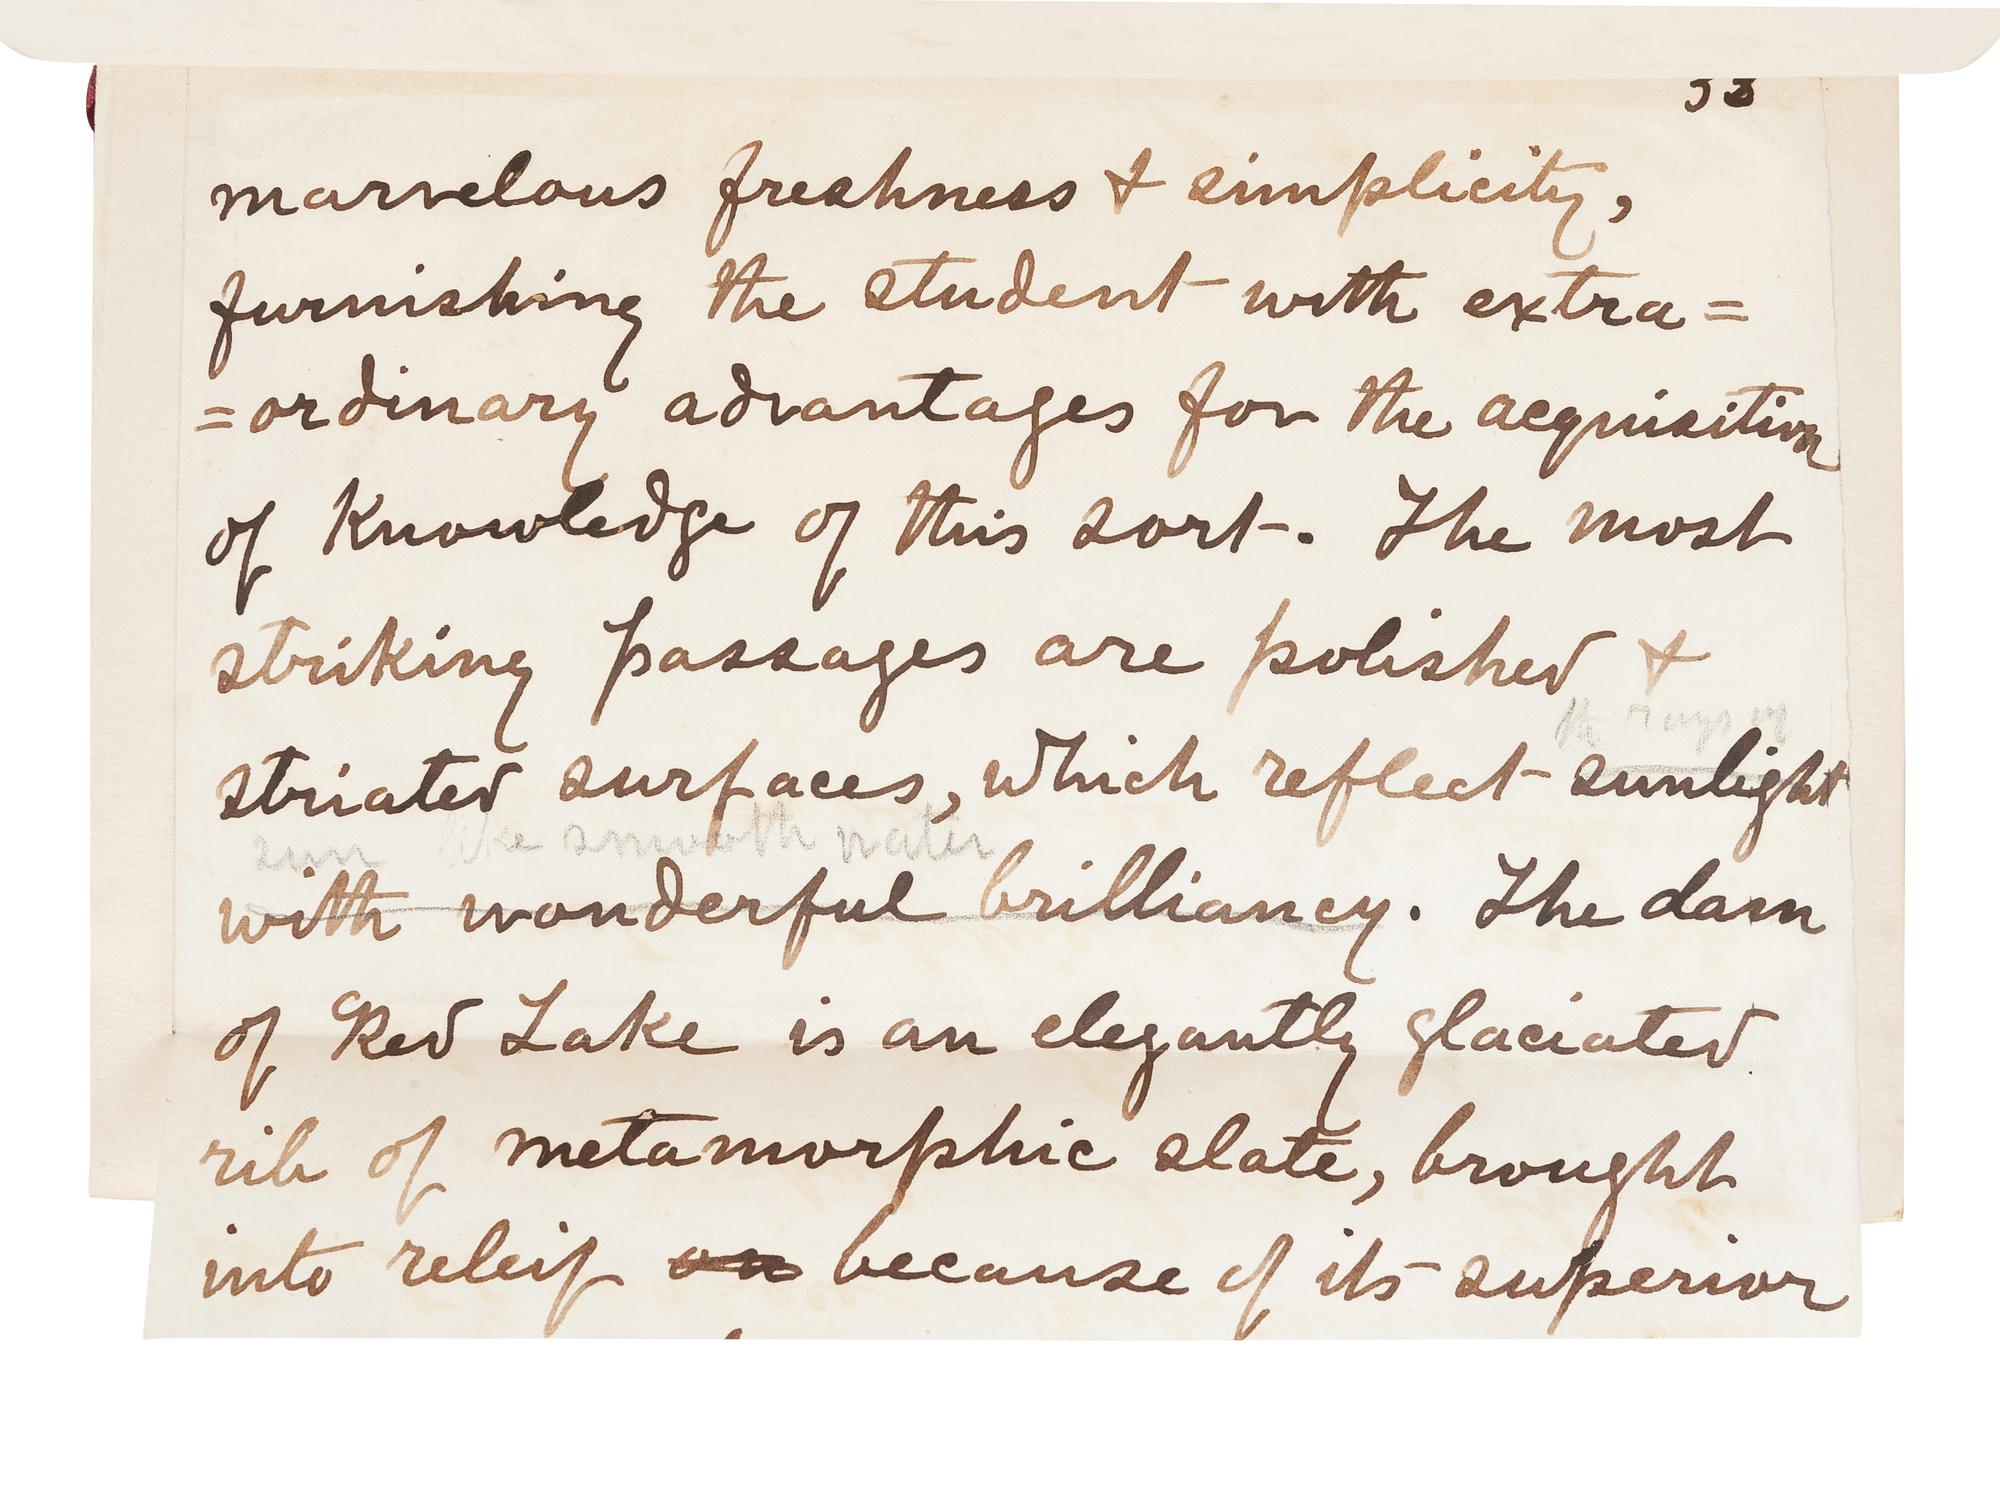 marvelous freshness & simplicity,
furnishing the student with extra=
=ordinary advantages for the acquisition
of Knowledge of this sort. The most
striking passages are polished &
the rays of
striated surfaces, which reflect sunlight
sun like smooth water
with wonderful brilliancy. The dam
of Red Lake is an elegantly glaciated
rib of metamorphic slate, brought
into releif because of its superior